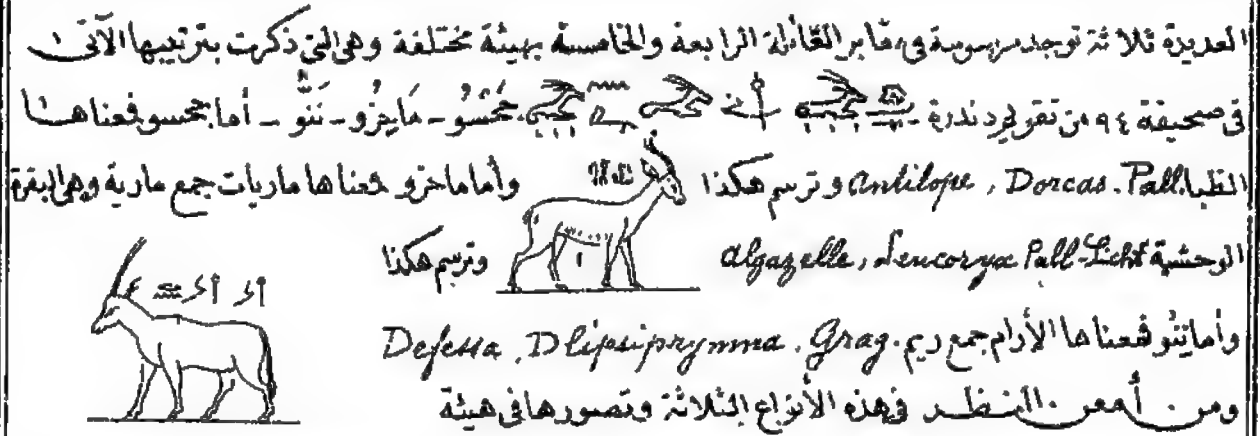 العديدة ثلاثة توجد مرسومة فى مقابر العائلة الرابعة والخامسة بهيئة مختلفة وهى التى ذكرت بترتيبها الآتى
فى صحيفة ٩٤ من تقويم دندرة حَحْسُو - مَا حِزُو - نَنُّو - أما ححسو فمعناها
الظبا Antilope, Dorcas. Pall. وترسم هكذا وأما ماحزو فمعناها ماريات جمع مارية وهى البقرة
الوحشية algazelle, Leucoryx Pall-Licht وترسم هكذا
وأما ننُو فمعناها الأرام جمع ريم. Defessa, Dlipsiprymma, Grag.
ومن أمعن النظر فى هذه الأنواع الثلاثة وتصورها فى هيئة